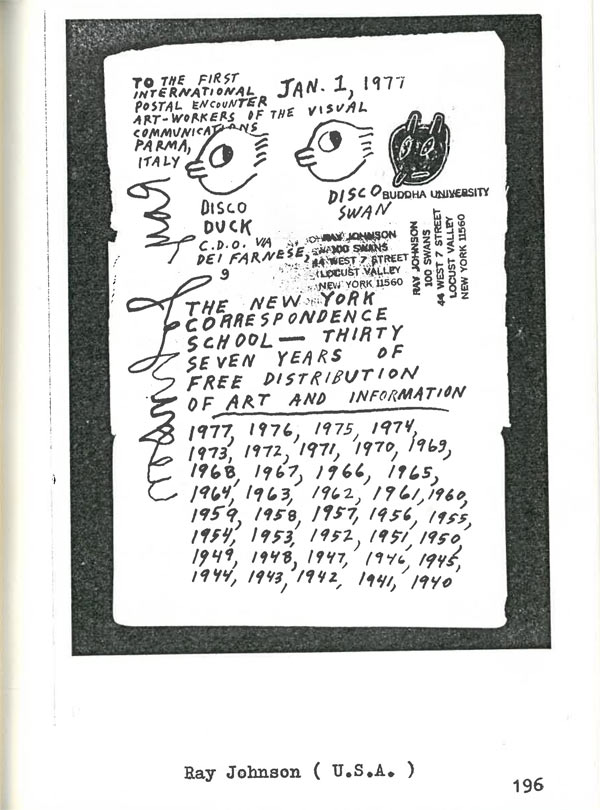 TO THE FIRST
INTERNATIONAL
POSTAL ENCOUNTER
ART-WORKERS OF THE VISUAL
COMMUNICATIONS
PARMA,
ITALY
JAN. 1, 1977
DISCO
DUCK
DISCO
SWAN
BUDDHA UNIVERSITY
C.D.O. VIA
DEI FARNESE,
9
RAY JOHNSON
100 SWANS
44 WEST 7 STREET
LOCUST VALLEY
NEW YORK 11560
RAY JOHNSON
100 SWANS
44 WEST 7 STREET
LOCUST VALLEY
NEW YORK 11560
Ray Johnson
THE NEW YORK
CORRESPONDENCE
SCHOOL — THIRTY
SEVEN YEARS OF
FREE DISTRIBUTION
OF ART AND INFORMATION
1977, 1976, 1975, 1974,
1973, 1972, 1971, 1970, 1969,
1968, 1967, 1966, 1965,
1964, 1963, 1962, 1961, 1960,
1959, 1958, 1957, 1956, 1955,
1954, 1953, 1952, 1951, 1950,
1949, 1948, 1947, 1946, 1945,
1944, 1943, 1942, 1941, 1940
Ray Johnson ( U.S.A. )
196